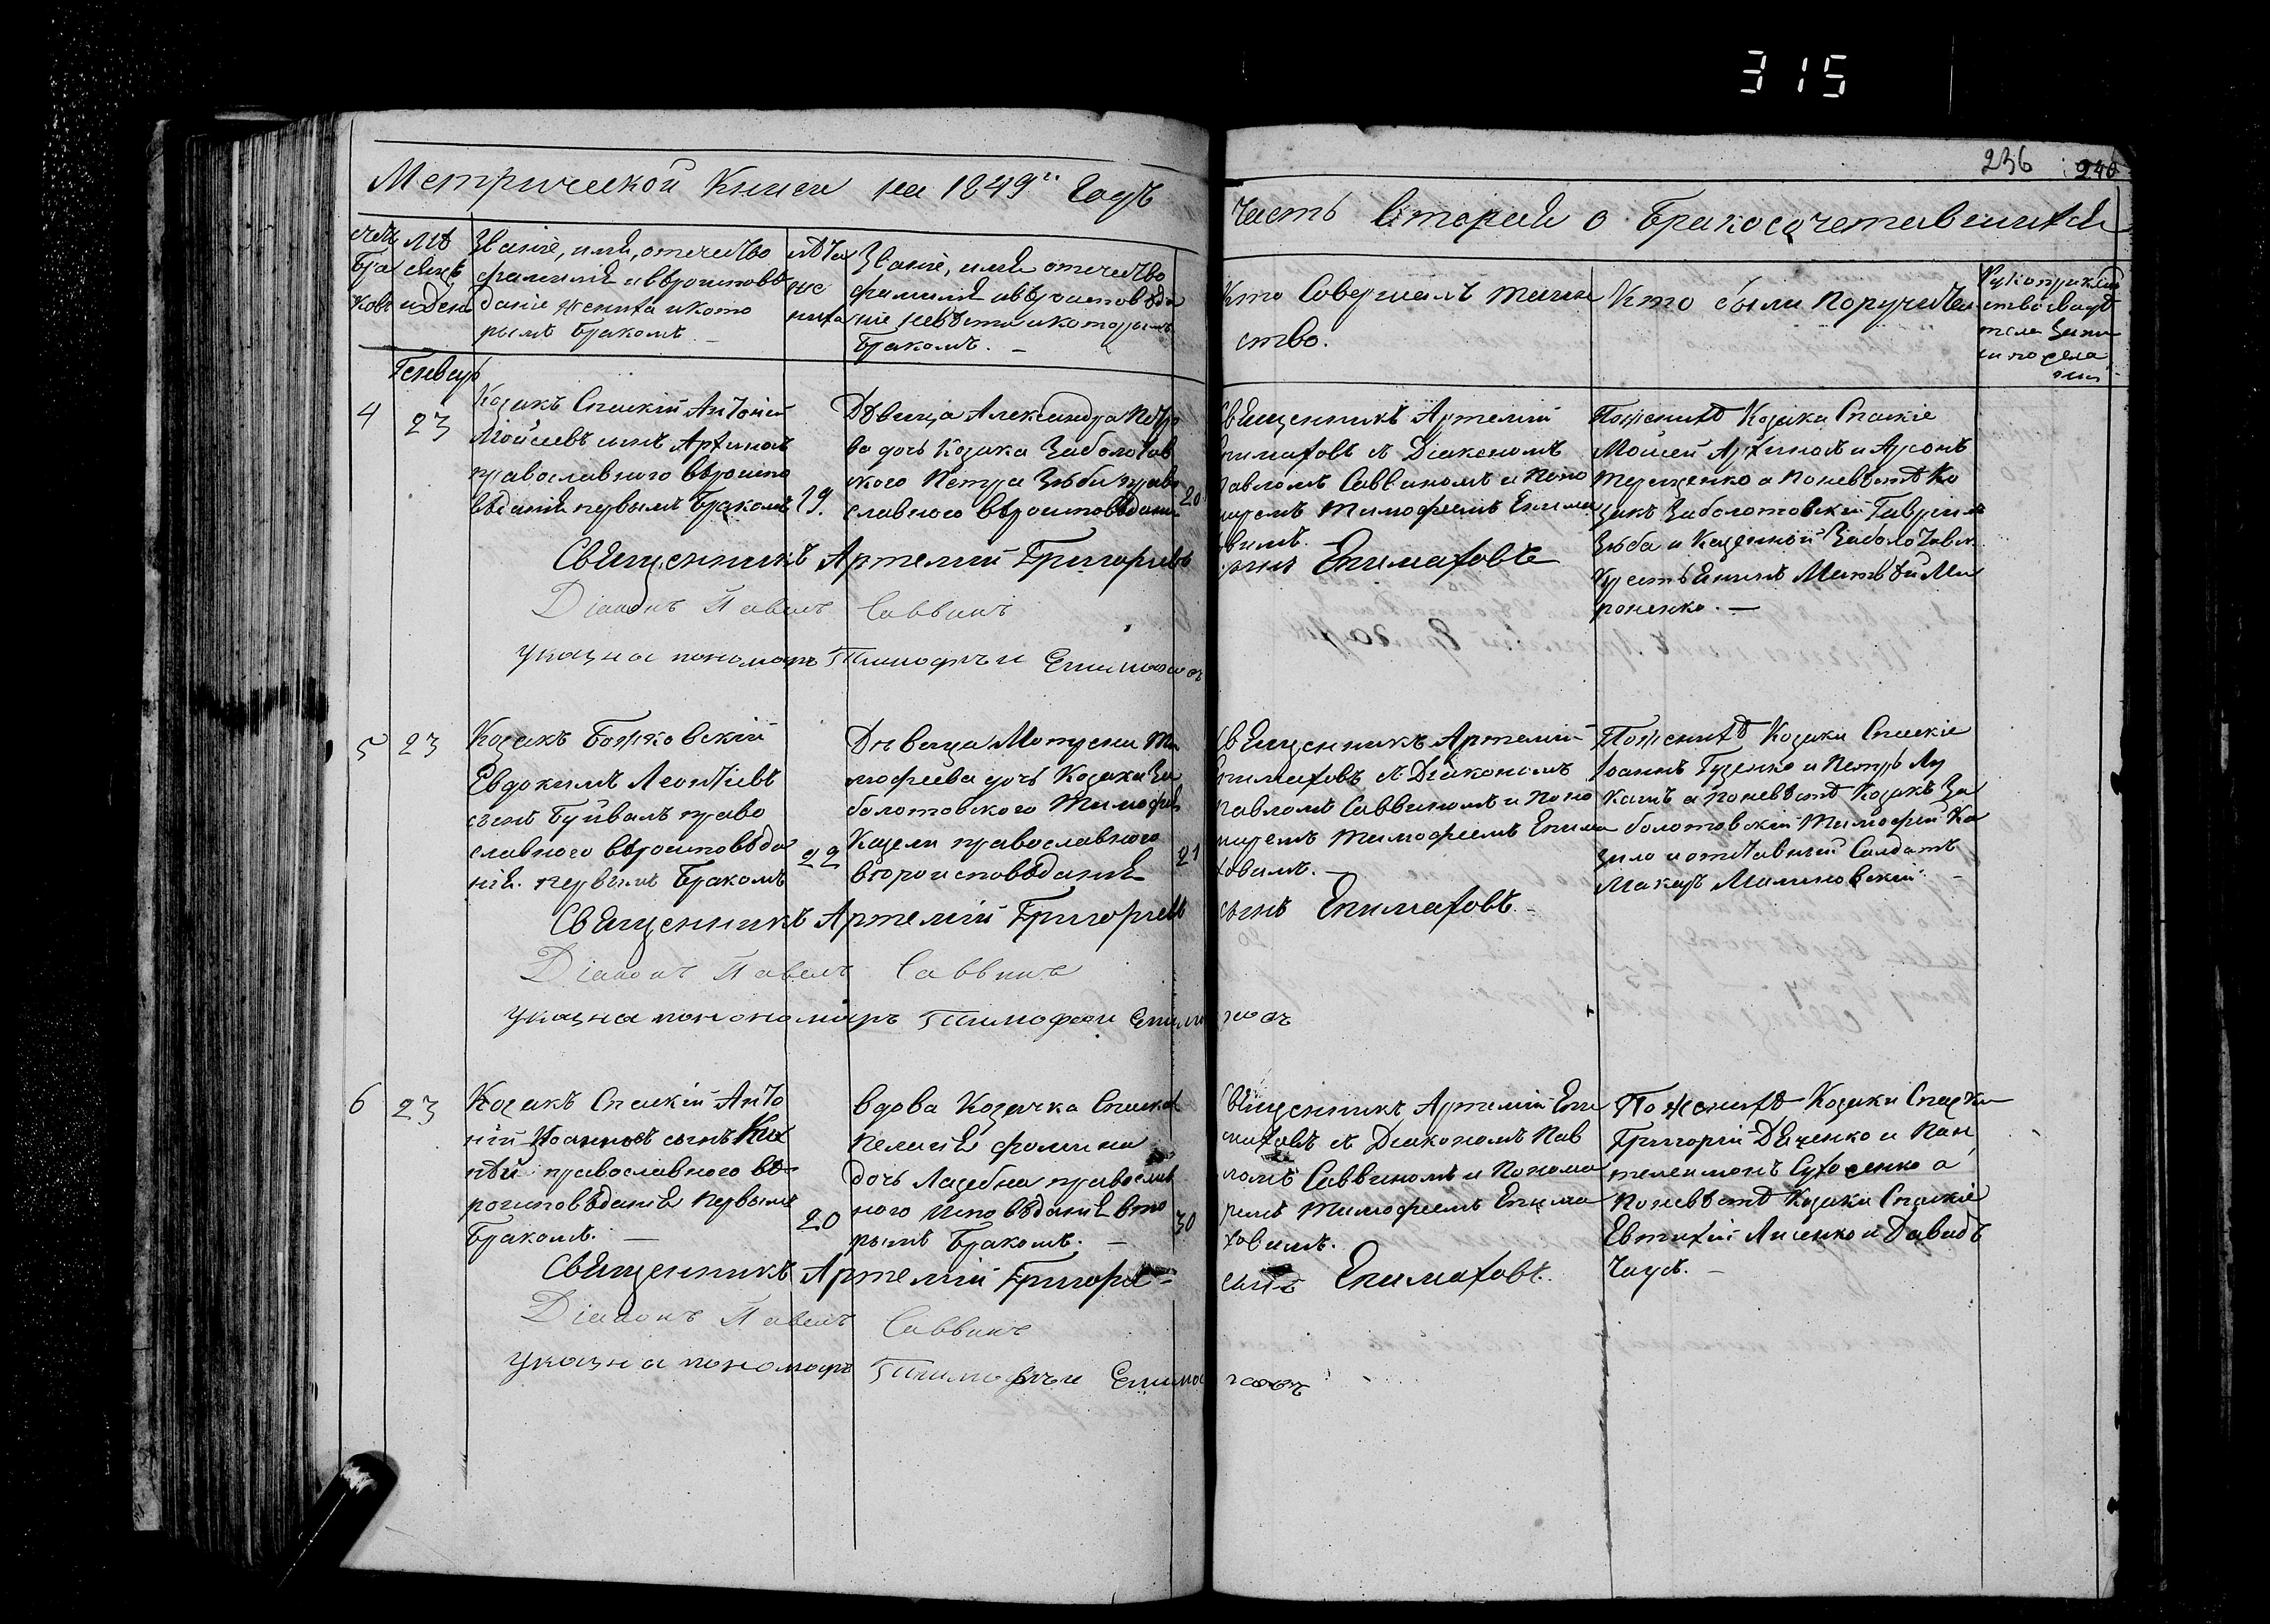 315
236 240
Метрической Книги на 1849й Годъ
Часть вторая о бракосочетавшихся
счетъ
бра
ковъ
мѣ
сяцъ
и день
Званіе, имя, отечество
фамилія и вѣроисповѣ
даніе жениха и кото
рымъ бракомъ
лѣта
же
ниха
Званіе, имя отечество
фамилія и вѣроисповѣда
ніе невѣсты и которымъ
бракомъ.
Кто совершалъ таин
ство.
Кто были поручители
Генваръ
4
23
Козакъ Спаскій Антоній
Моисеевъ сынъ Архипохъ
православного вѣроиспо
вѣданія первымъ бракомъ
19.
Дѣвица Александра Петро
ва дочь Козака Заболотов
ского Петра Зѣбы право
славного вѣроисповѣдані
20
Священникъ Артемій
Епимаховъ съ Діакономъ
Павломъ Саввиномъ и Поно
маремъ Тимофеемъ Епима
Поженихѣ Козаки Спаскіе
Моисей и Аронъ
Терещенко а поневѣстѣ Ко
закъ Заболотовскій Гаврій
Зѣба и Казенной Заболотовск
Матвѣй Ми
роненко.
Священникъ Артемій Григорьевъ
сынъ Епимаховъ
Діаконъ Павелъ Саввинъ
пономаръ Тимофѣи
5
23
Козакъ Божковскій
Евдокимъ Леонтіевъ
сынъ Буйвалъ право
славного вѣроисповѣда
нія. первымъ бракомъ
22
Дѣвица Мотруна Ти
мофеева дочь Козака За
болотовского Тимофея
Кацели православного
вѣроисповѣданія
21
Священникъ Артемій
Епимаховъ съ Діакономъ
Павломъ Саввиномъ и Поно
маремъ Тимофеемъ Епима
ховымъ.
Поженихѣ Козаки Спаскіе
Іоаннъ Гузенко и Петръ Лу
а поневѣстѣ Козакъ За
болотовскій Тимофей Ка
и отставный Солдатъ
Макаръ Малиновскій.
Священникъ Артемій Григорьевъ
сынъ Епимаховъ.
Діаконъ Павелъ Саввинъ
пономаръ Тимофеи
6
23
Козакъ Спаскій Анто
ній Іоанновъ сынъ Ких
православного вѣ
роисповѣданія первымъ
бракомъ.
20
вдова Козачка Спаская
Пелагія Фомина
дочь Лазебна православ
ного исповѣданія вто
рымъ бракомъ.
30
Священникъ Артемій Епи
маховъ съ Діакономъ Пав
ломъ Саввиномъ и Понома
ремъ Тимофеемъ Епима
ховымъ.
Поженихѣ Козаки Спаски
Григорій Дяченко и Пан
телеимонъ Сухосенко а
поневѣстѣ Козаки Спаскіе
Евтихій Лисенко и Давидъ
Чаусъ.
Священникъ Артемій Григорь
сынъ Епимаховъ.
Діаконъ Павелъ Саввинъ
пономаръ Тимофѣи